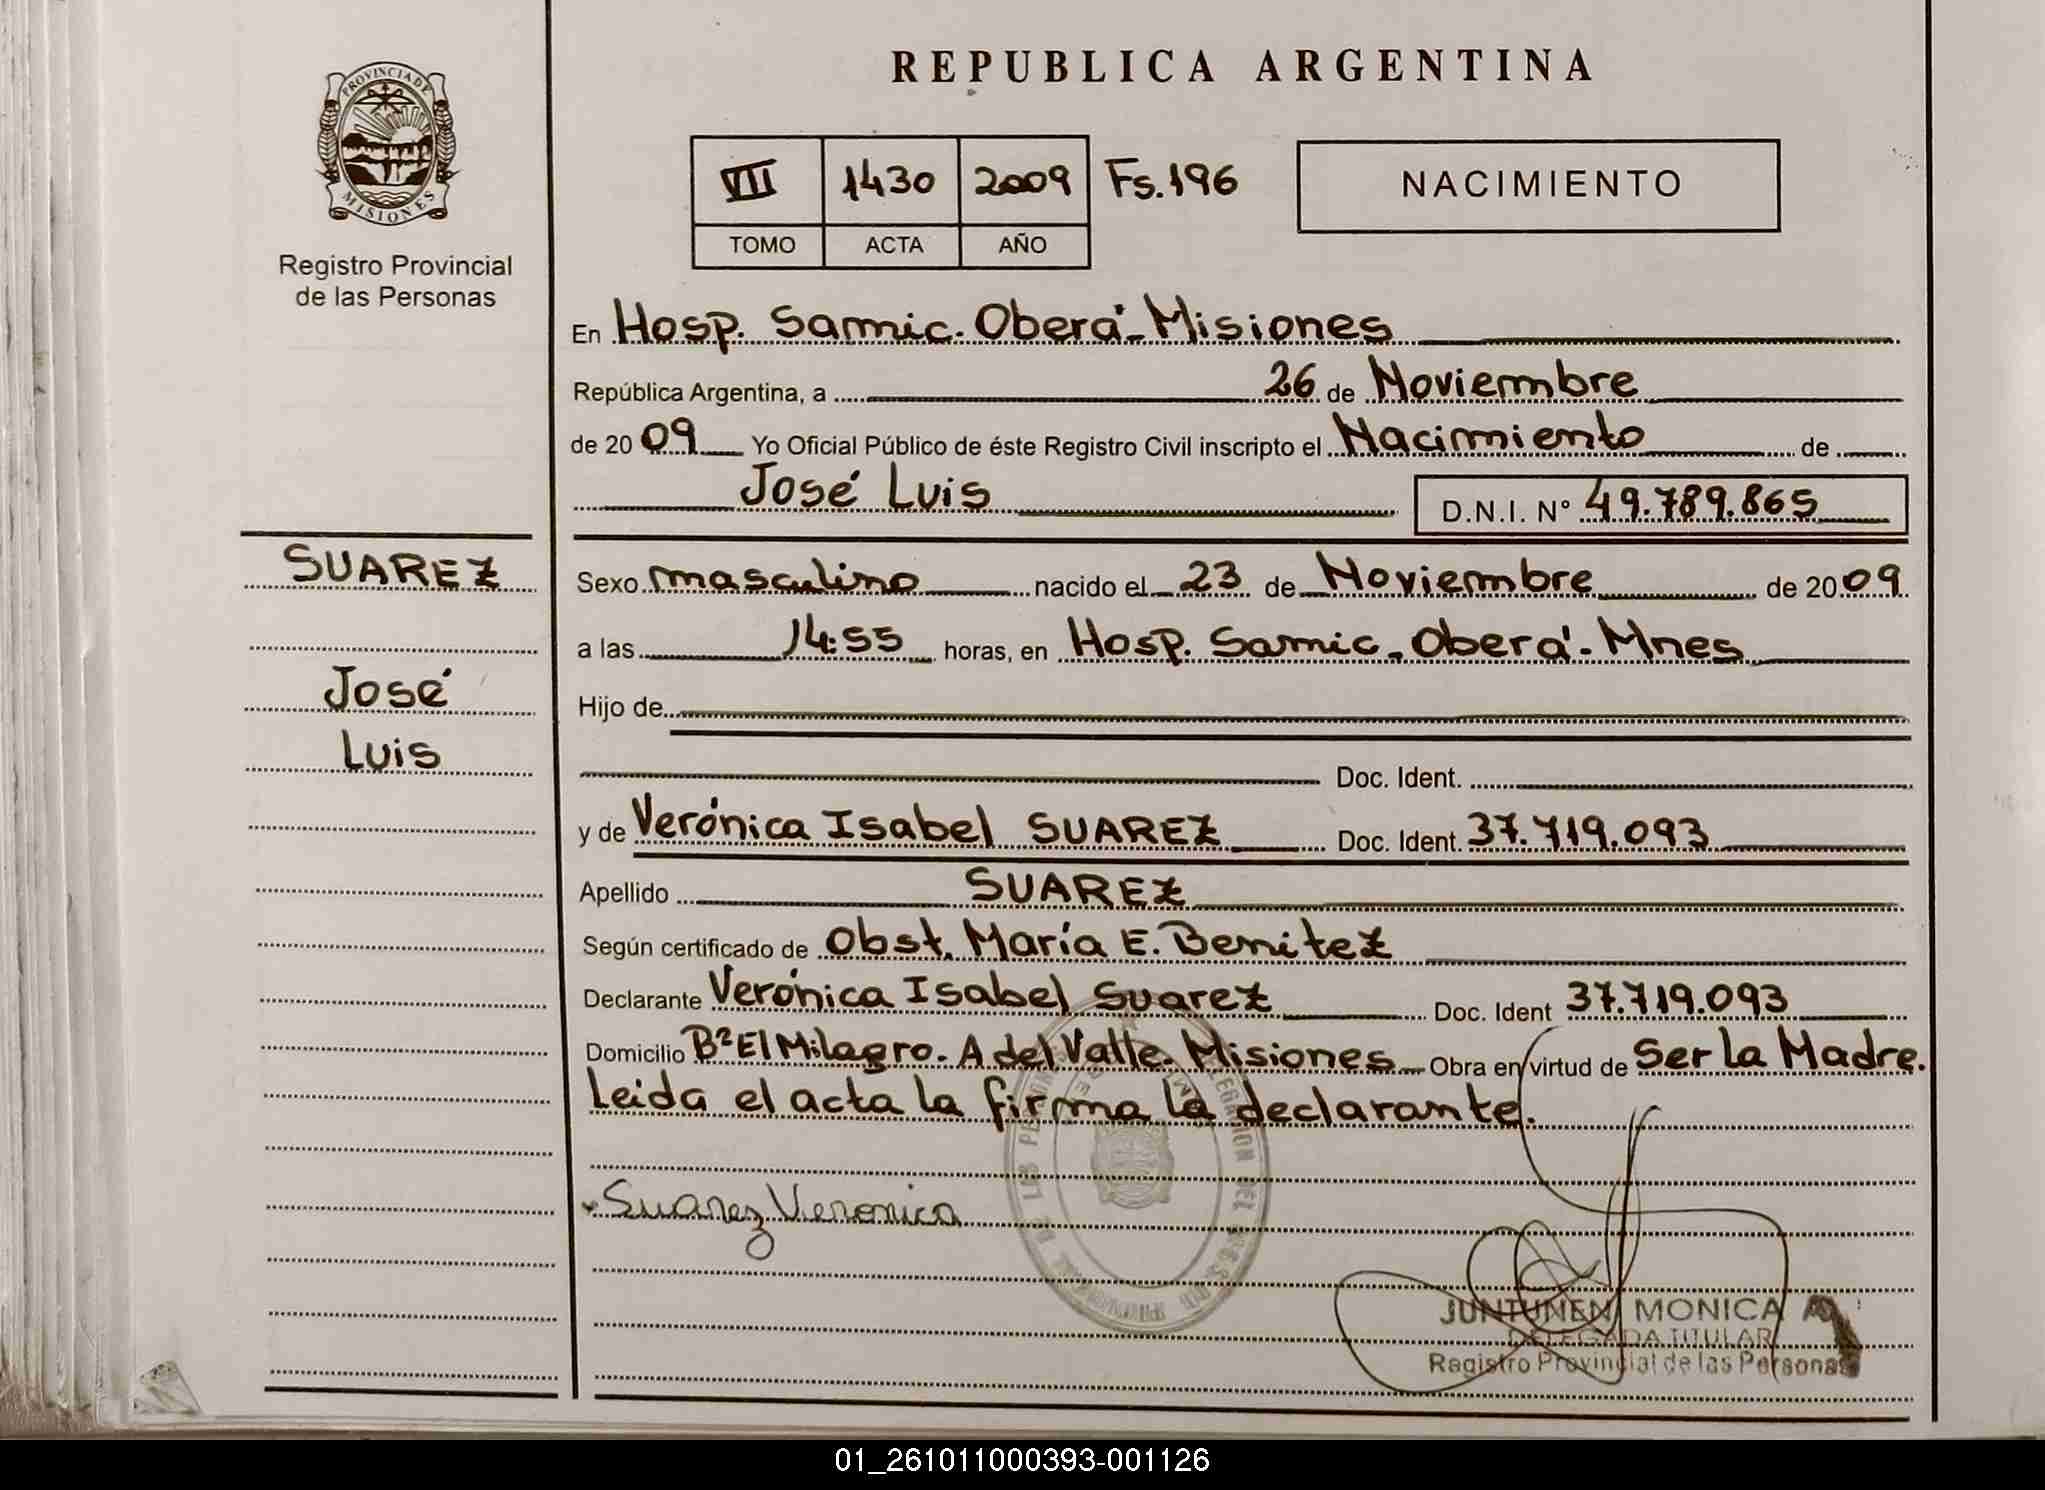 REPUBLICA ARGENTINA
PROVINCIA DE
MISIONES
Registro Provincial
de las Personas
VIII 1430 2009 Fs.196
TOMO ACTA AÑO
NACIMIENTO
En Hosp. Samic. Oberá-Misiones
República Argentina, a 26 de Noviembre
de 2009 Yo Oficial Público de éste Registro Civil inscripto el Nacimiento de
José Luis D.N.I. N° 49.789.865
SUAREZ
José
Luis
Sexo masculino nacido el 23 de Noviembre de 2009
a las 14:55 horas, en Hosp. Samic-Oberá-Mnes
Hijo de
Doc. Ident.
y de Verónica Isabel SUAREZ Doc. Ident. 37.719.093
Apellido SUAREZ
Según certificado de Obst. María E. Benitez
Declarante Verónica Isabel Suarez Doc. Ident 37.719.093
Domicilio Bº El Milagro. A del Valle-Misiones Obra en virtud de Ser la Madre.
Leida el acta la firma la declarante.
Suarez Veronica
JUNTUNEN MONICA A
DELEGADA TITULAR
Registro Provincial de las Personas
01_261011000393-001126